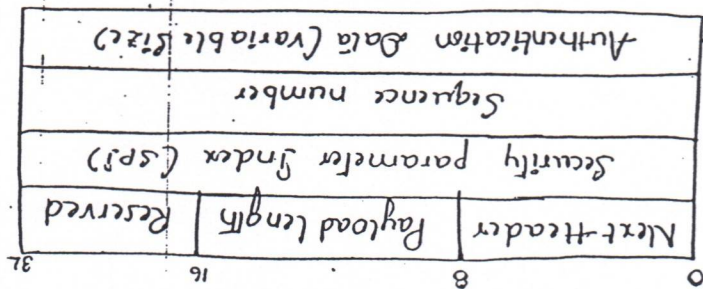 0 8 16 32
Next-Header Payload length Reserved
Security parameter Index (SPI)
Sequence number
Authentication Data (variable Size)